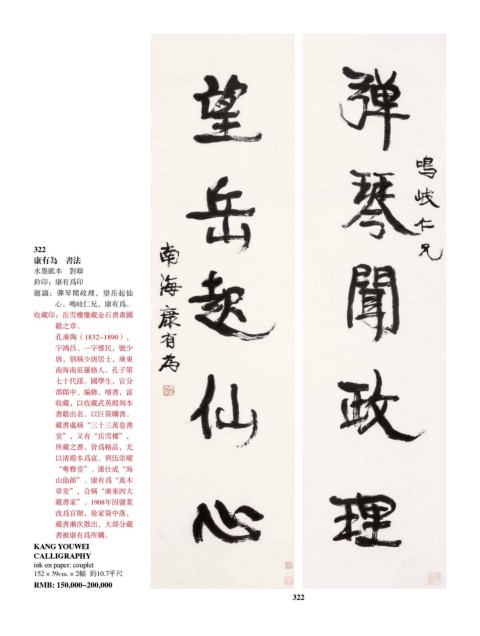 彈琴聞政理
鳴岐仁兄
望岳起仙心
南海康有為
322
康有為　書法
水墨紙本　對聯
鈐印：康有爲印
題識：彈琴聞政理，望岳起仙
心。鳴岐仁兄，康有爲。
收藏印：岳雪樓鑒藏金石書畫圖
籍之章。
孔廣陶（1832-1890），
字鴻昌、一字懷民，號少
唐，別稱少唐居士，廣東
南海南莊羅格人。孔子第
七十代孫。國學生，官分
部郎中、編修。嗜書，富
收藏，以收藏武英殿刻本
書籍出名。以巨資購書。
藏書處稱“三十三萬卷書
堂”，又有“岳雪樓”，
所藏之書，皆爲精品，尤
以清殿本爲富。與伍崇曜
“粵雅堂”、潘仕成“海
山仙館”、康有爲“萬木
草堂”，合稱“廣東四大
藏書家”。1908年因鹽業
改爲官辦，後家資中落，
藏書漸次散出，大部分藏
書被康有爲所購。
KANG YOUWEI
CALLIGRAPHY
ink on paper; couplet
152×39cm.×2幅　約10.7平尺
RMB: 150,000–200,000
322